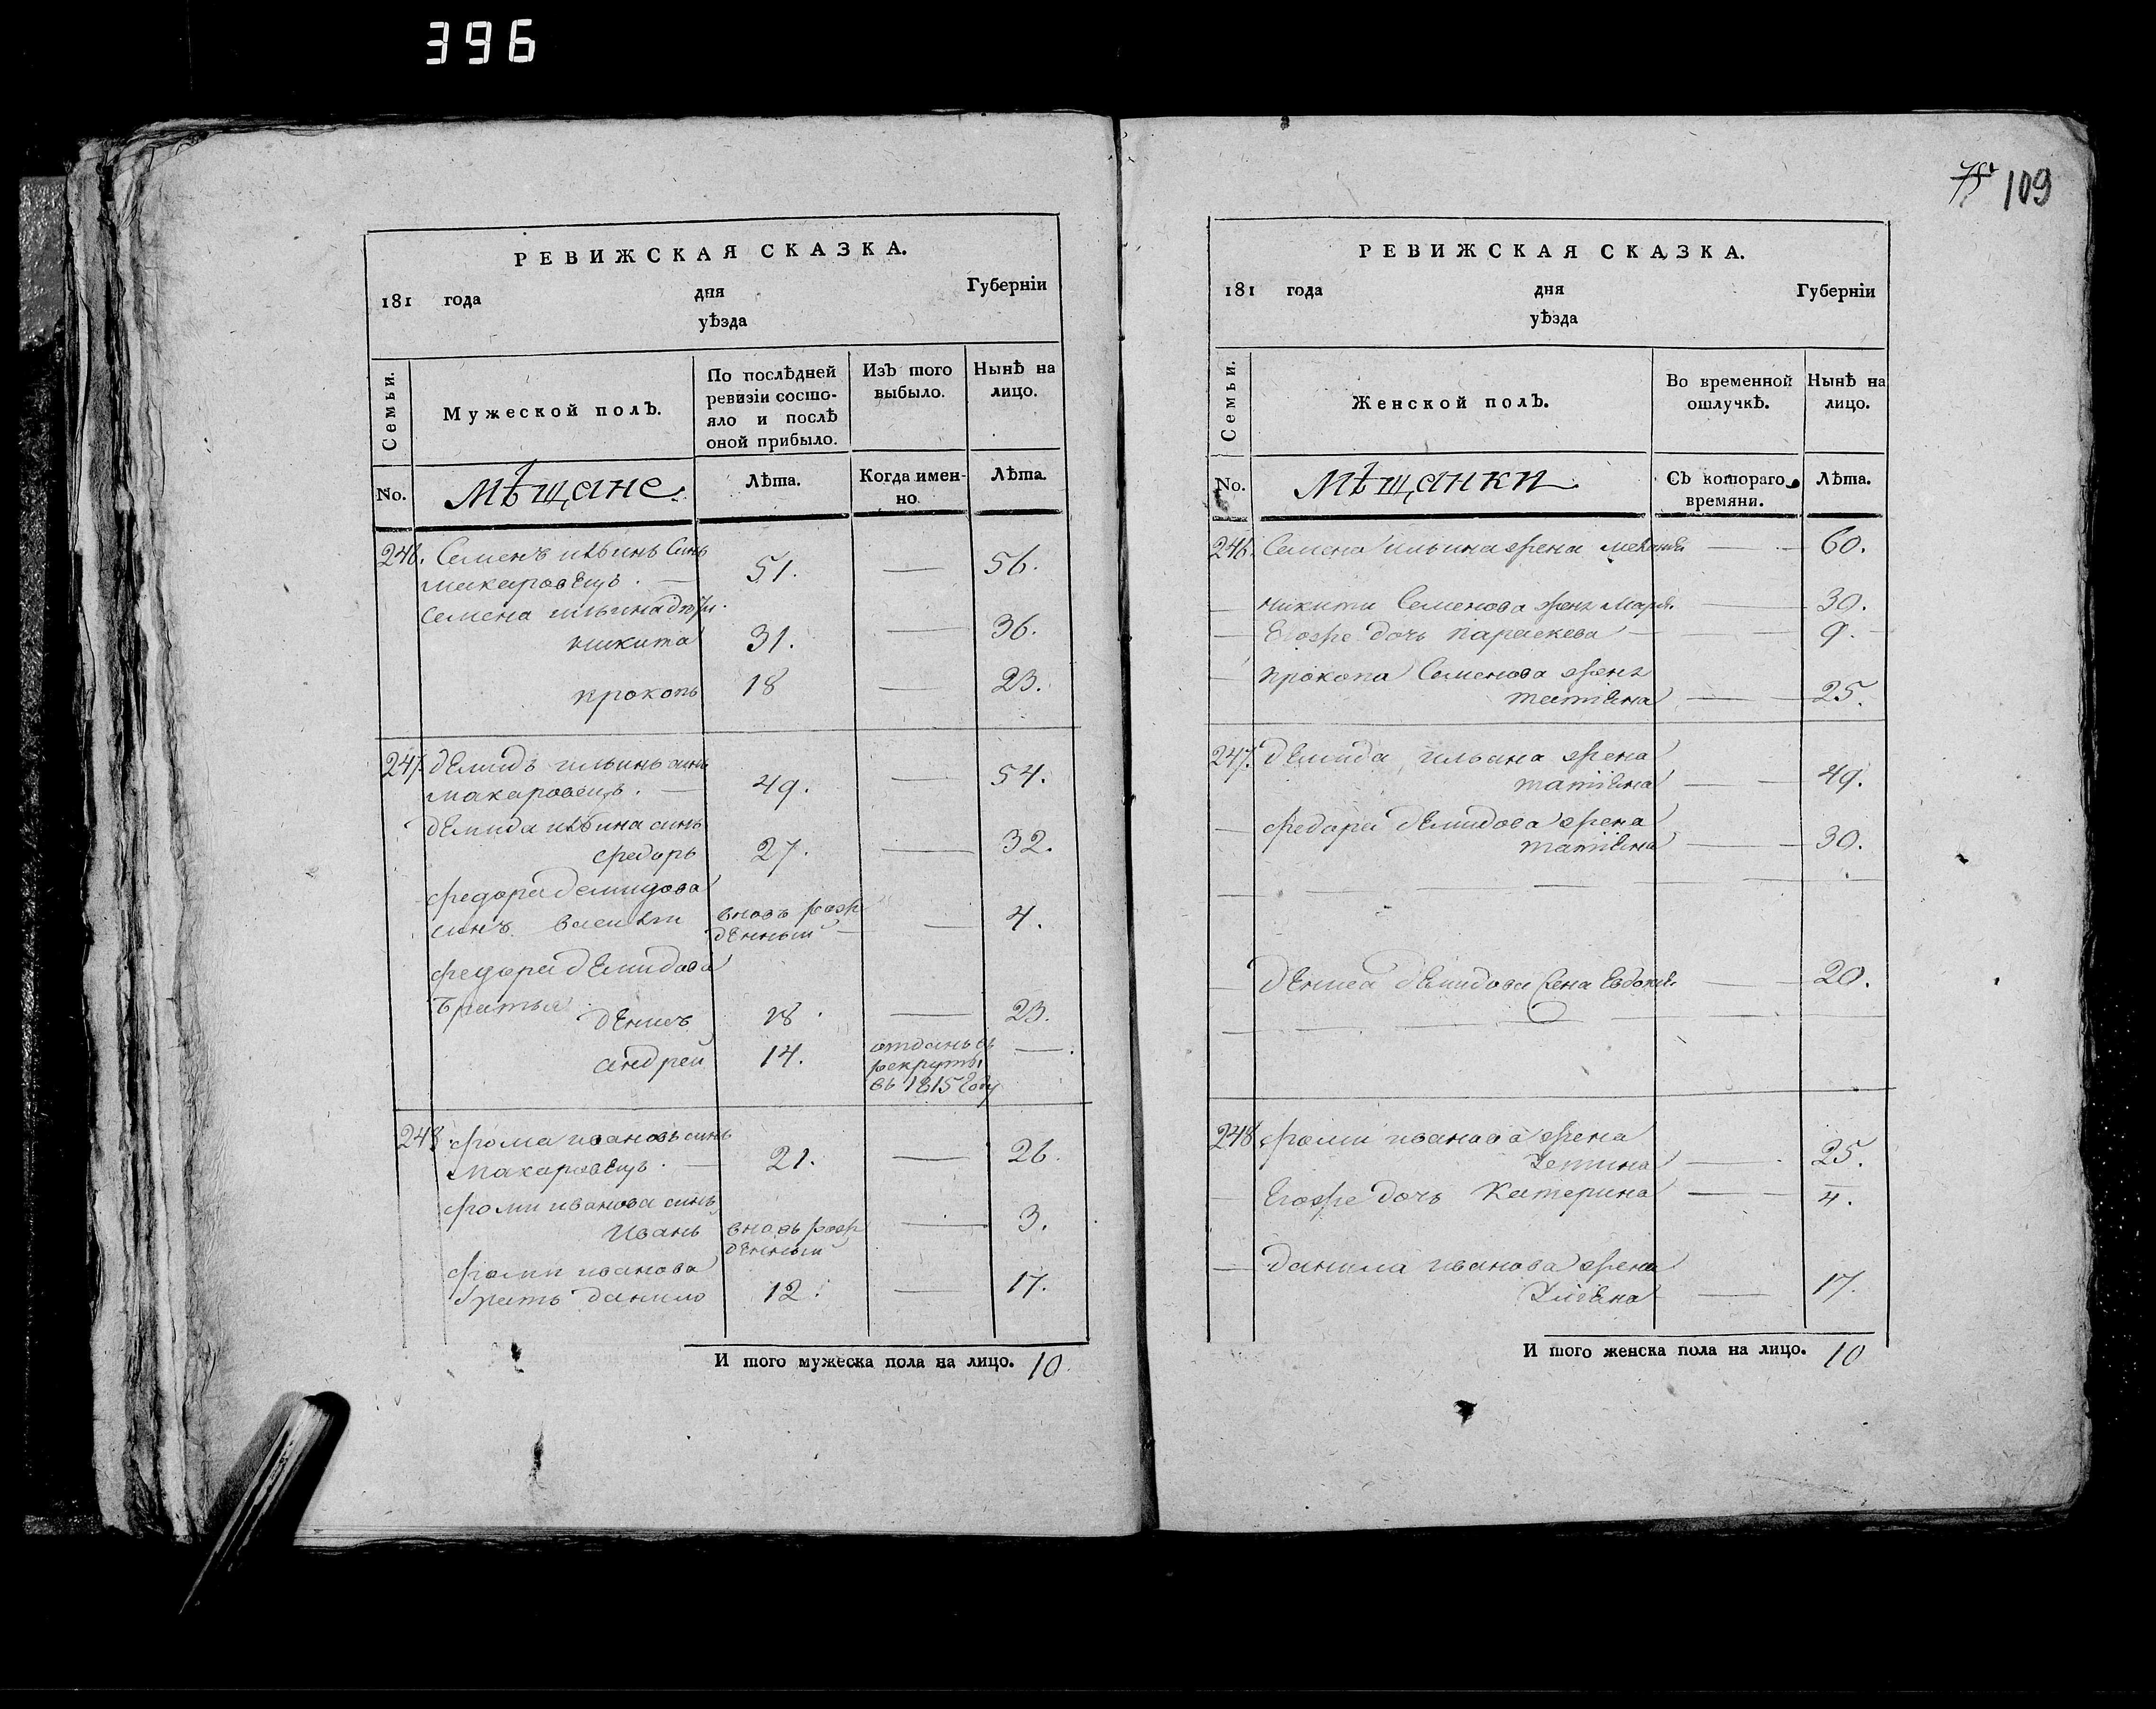 396
РЕВИЖСКАЯ СКАЗКА.
181 года дня Губерніи
уѣзда
Семьи.
Мужеской полъ.
По послѣдней ревизіи состо-яло и послѣ оной прибыло.
Изъ того выбыло.
Нынѣ на лицо.
No.
мѣщане.
Лѣта.
Когда имен-но.
Лѣта.
246. Семенъ ильинъ синъ
макаровецъ. — 51. — 56.
Семена ильина дѣти.
никита 31. — 36.
прокопъ 18 — 23.
247. демидъ ильинъ синъ
макаровецъ. — 49. — 54.
демида ильина синъ
федоръ 27. — 32.
федора демидова
синъ василий вновь рож
денный — — 4.
федора демидова
братья
денисъ 18. — 23.
андрей 14. отданъ въ
рекруты
въ 1815 году — .
248. фома ивановъ синъ
макаровецъ. — 21. — 26.
фоми иванова синъ
иванъ вновь рож
денный — 3.
фоми иванова
братъ данило 12. — 17.
И того мужеска пола на лицо. 10.
75 109
РЕВИЖСКАЯ СКАЗКА.
181 года дня Губерніи
уѣзда
Семьи.
Женской полъ.
Во временной отлучкѣ.
Нынѣ на лицо.
No.
мѣщанки.
Съ котораго времяни.
Лѣта.
246. Семена ильина жена — 60.
— никити Семенова жена Марія. — 30.
— Егоже дочь параскева — — 9. —
— прокопа Семенова жена
татіяна — 25.
247. демида ильина жена
татіяна — 49.
— федора демидова жена
татіяна — 30.
— дениса демидова жена Евдокія — 20.
248. фоми иванова жена
— 25.
— Егоже дочь Катерина — 4.
— данила иванова жена
— 17.
И того женска пола на лицо. 10